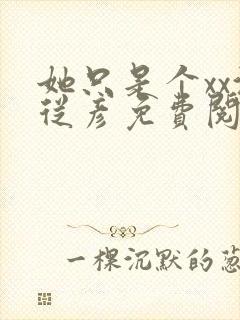 她只是个xx
从彦免費閱
一棵沉默的葱